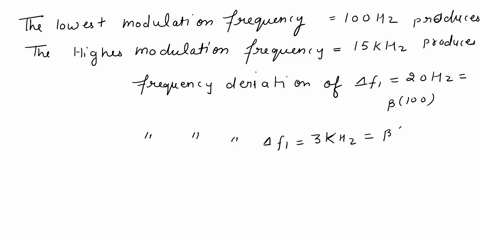 The lowest modulation frequency = 100 Hz produces
The Highes modulation frequency = 15 KHz produces
frequency deriation of Δf₁ = 20 Hz =
β(100)
" " " Δf₁ = 3 KHz = β